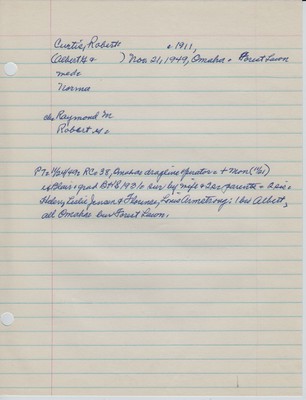 Curtis, Robert H. b 1911,
(Albert H &        ) Nov. 21, 1949, Omaha - Forest Lawn
mede
Norma
chs Raymond M.
Robert
PTo 11/22/49: Rob 38, Omahas dragline operator - + Mon (11/21)
of grad 1931 sur by wife & 2 ss. parents - 2 sis -
Leslie Jensen & Florence, Louis Armstrong; 1 bro Albert,
all Omahas bur Forest Lawn.